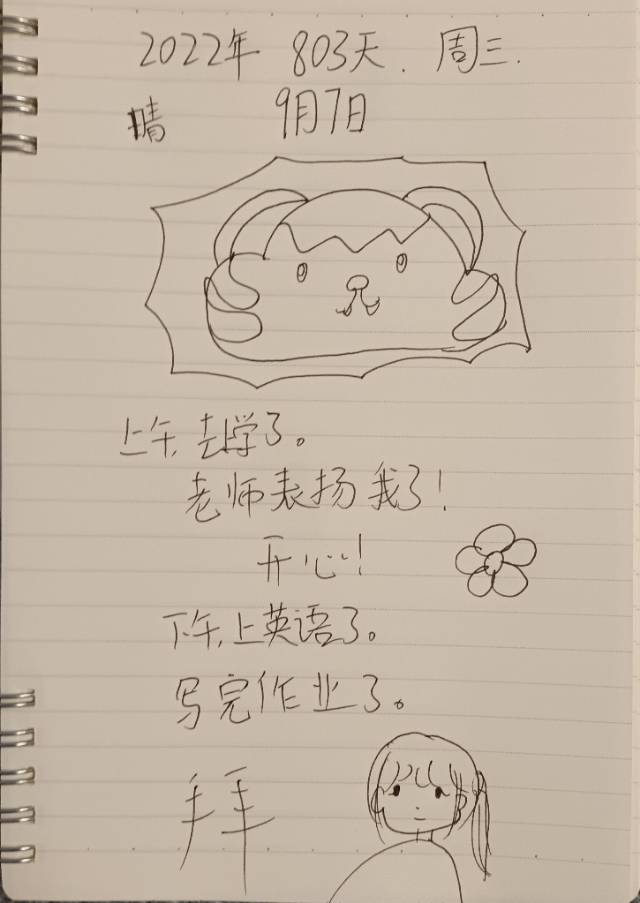 2022年 803天. 周三.
晴 9月7日
上午, 去学了。
老师表扬我了!
开心!
下午,上英语了。
写完作业了。
拜